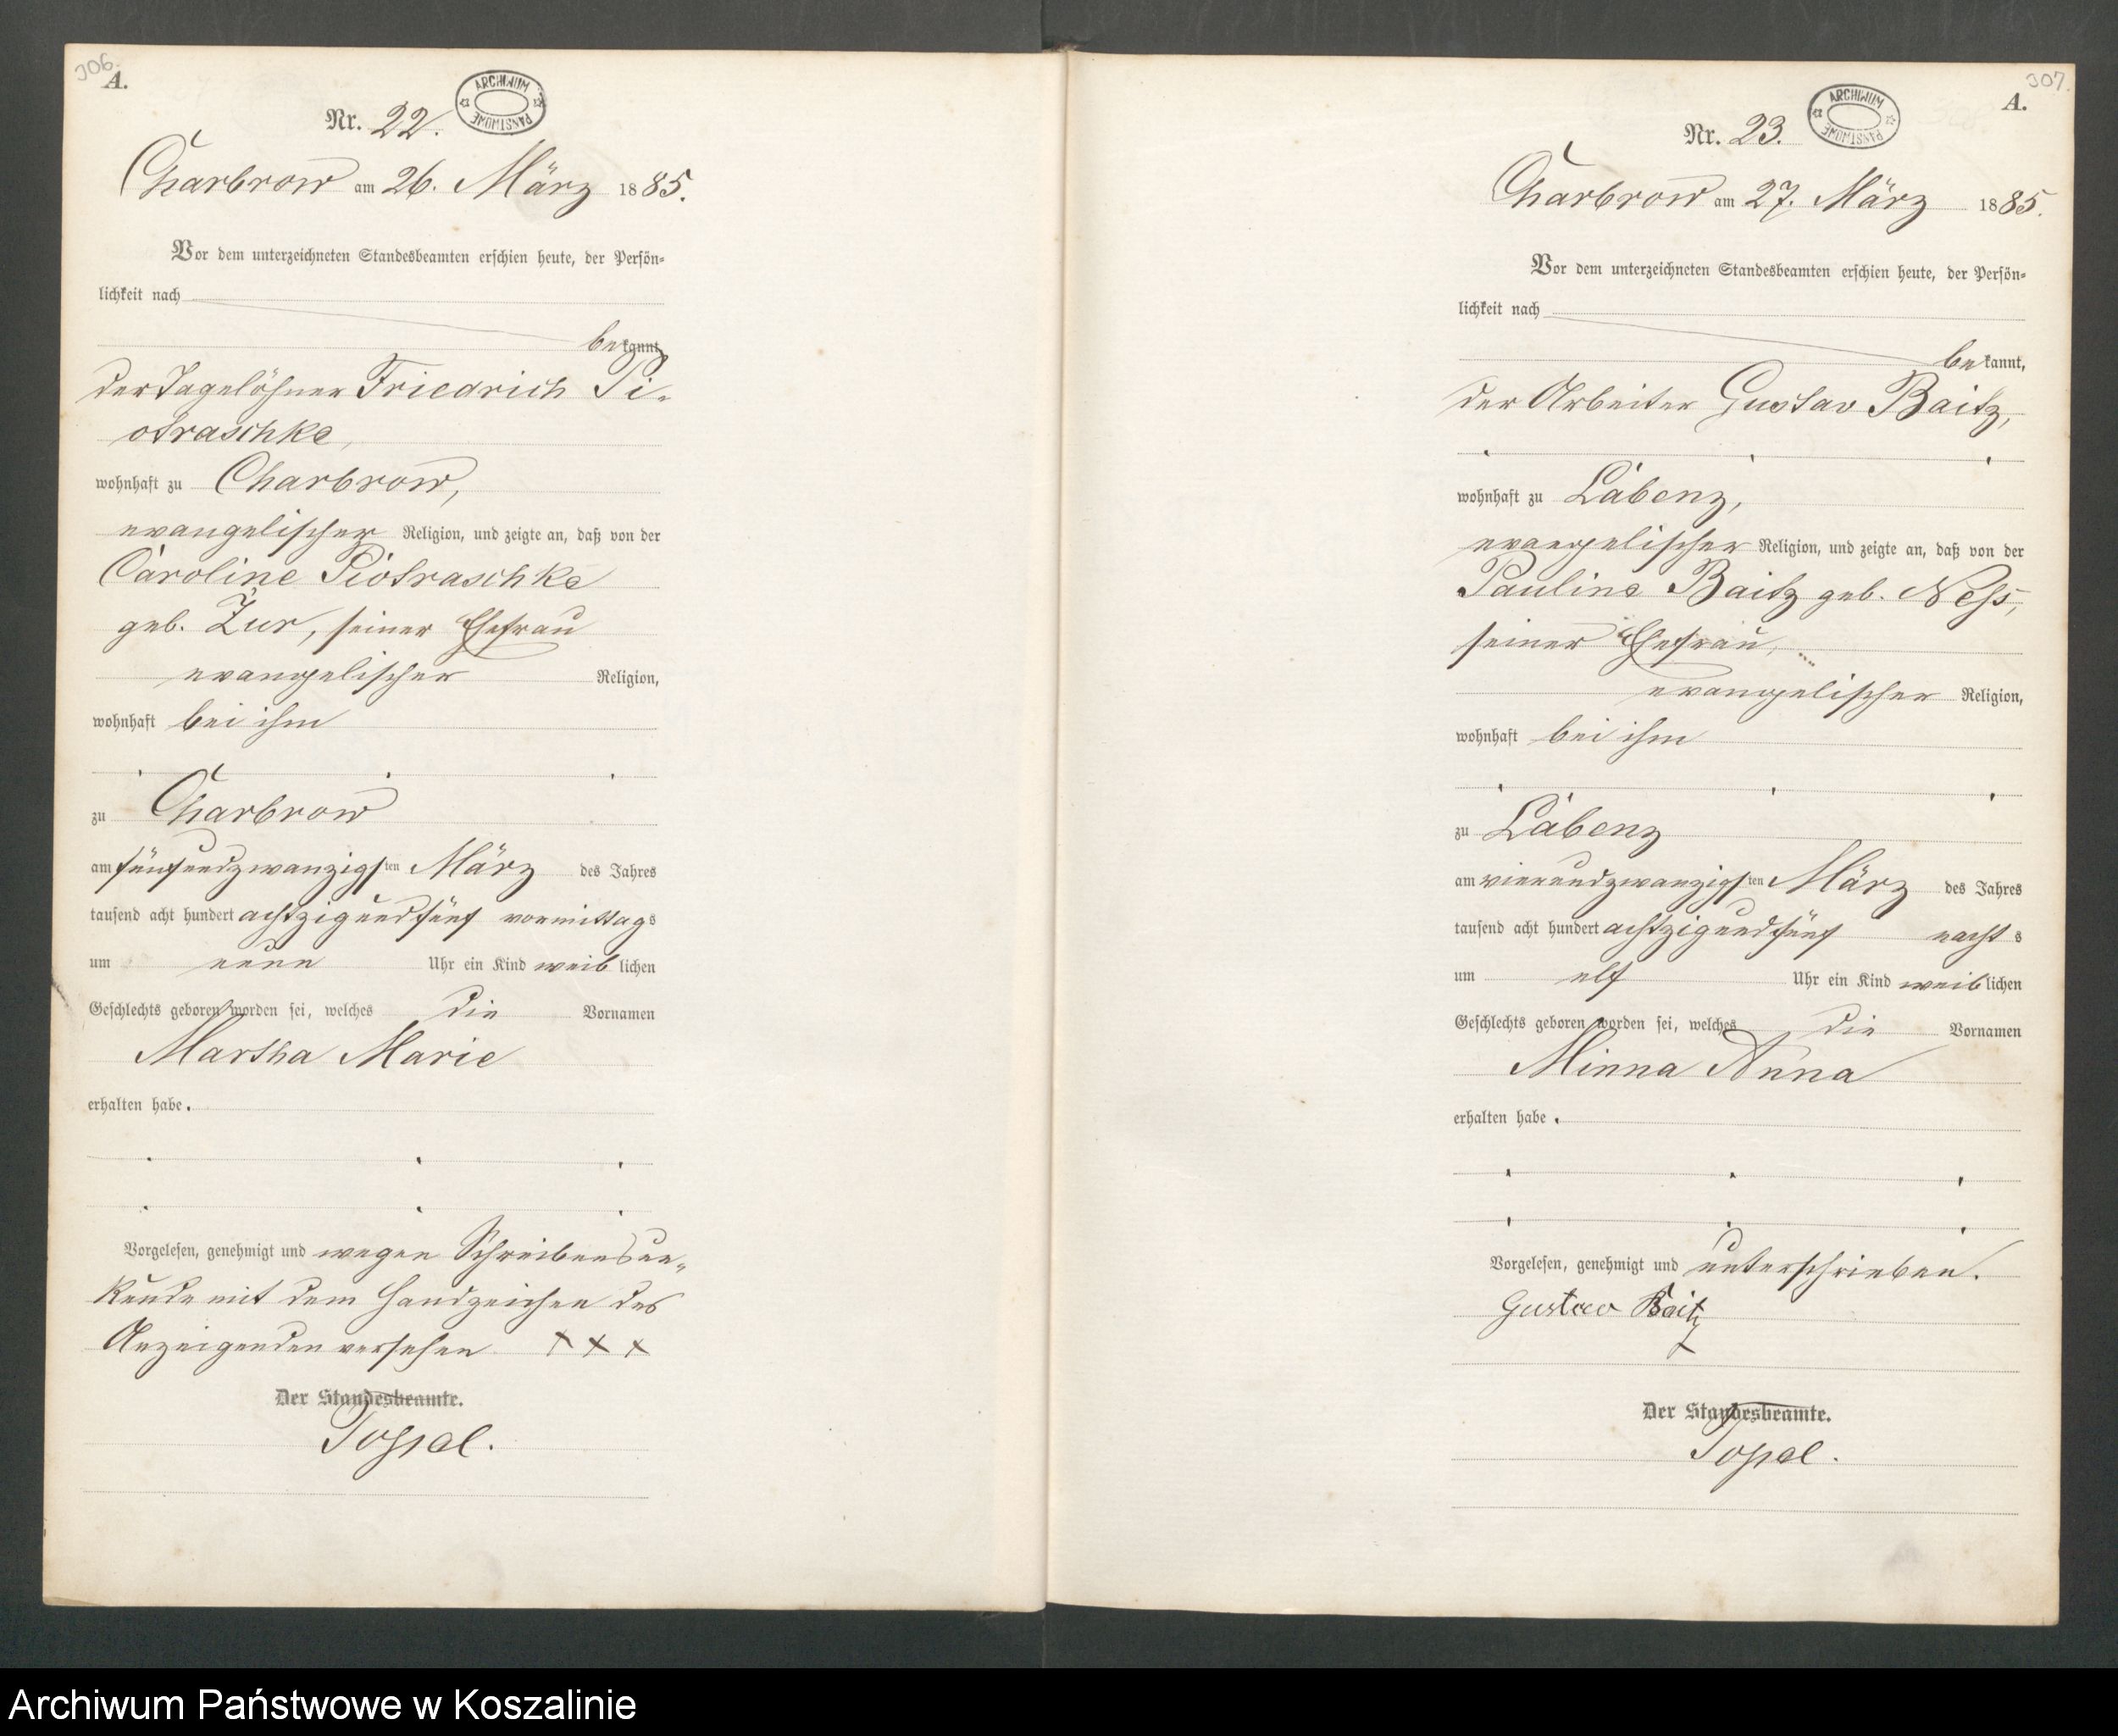 306.
A.
ARCHIWUM PAŃSTWOWE
Nr. 22.
Charbrow am 26. März 1885.
Vor dem unterzeichneten Standesbeamten erschien heute, der Persön-
lichkeit nach
bekannt,
der Tagelöhner Friedrich Pi-
otraschke,
wohnhaft zu Charbrow,
evangelischer Religion, und zeigte an, daß von der
Caroline Piotraschke
geb. Zur, seiner Ehefrau
evangelischer Religion,
wohnhaft bei ihm
zu Charbrow
am fünfundzwanzigsten März des Jahres
tausend acht hundert achtzigundfünf vormittags
um neun Uhr ein Kind weiblichen
Geschlechts geboren worden sei, welches die Vornamen
Martha Marie
erhalten habe.
Vorgelesen, genehmigt und wegen Schreibensun-
kunde mit dem Handzeichen des
Anzeigenden versehen x x x
Der Standesbeamte.
307.
A.
ARCHIWUM PAŃSTWOWE
Nr. 23.
Charbrow am 27. März 1885.
Vor dem unterzeichneten Standesbeamten erschien heute, der Persön-
lichkeit nach
bekannt,
der Arbeiter Gustav Baitz,
wohnhaft zu Labenz,
evangelischer Religion, und zeigte an, daß von der
Pauline Baitz geb. Ness,
seiner Ehefrau,
evangelischer Religion,
wohnhaft bei ihm
zu Labenz
am vierundzwanzigsten März des Jahres
tausend acht hundert achtzigundfünf nachts
um elf Uhr ein Kind weiblichen
Geschlechts geboren worden sei, welches die Vornamen
Minna Anna
erhalten habe.
Vorgelesen, genehmigt und unterschrieben.
Gustav Baitz
Der Standesbeamte.
Archiwum Państwowe w Koszalinie